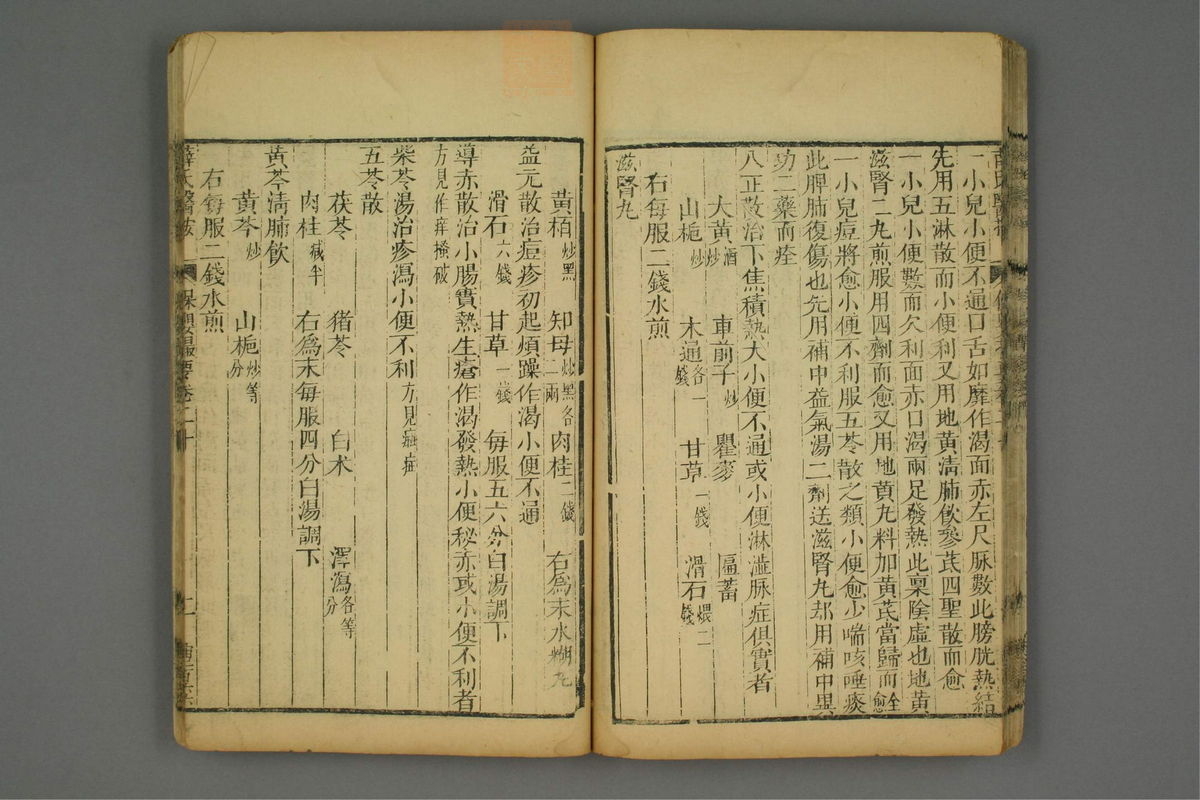 一小兒小便不通口舌如靡作渴面赤左尺脉數此膀胱熱結
先用五淋散而小便利又用地黄清肺飲參茋四聖散而愈
一小兒小便數而欠利面赤口渴兩足發熱此稟陰虛也地黄
滋腎二丸煎服用四劑而愈又用地黄丸料加黄茋當歸而全愈
一小兒痘將愈小便不利服五苓散之類小便愈少喘咳唾痰
此脾肺復傷也先用補中益氣湯二劑送滋腎丸却用補中異
功二藥而痊
八正散治下焦積熱大小便不通或小便淋澁脉症俱實者
大黄酒炒 車前子炒 瞿麥 萹蓄
山梔炒 木通各一錢 甘草一錢 滑石煨二錢
右每服二錢水煎
滋腎丸
黄栢炒黑 知母炒黑各二兩 肉桂二錢 右爲末水糊丸
益元散治痘疹初起煩躁作渴小便不通
滑石六錢 甘草一錢 每服五六分白湯調下
導赤散治小腸實熱生瘡作渴發熱小便秘赤或小便不利者
方見作痒搔破
柴苓湯治疹瀉小便不利方見痘症
五苓散
茯苓 猪苓 白术 澤瀉各等分
肉桂減半 右爲末每服四分白湯調下
黄芩清肺飲
黄芩炒 山梔炒等分
右每服二錢水煎
薛氏醫按 保嬰撮要卷二十